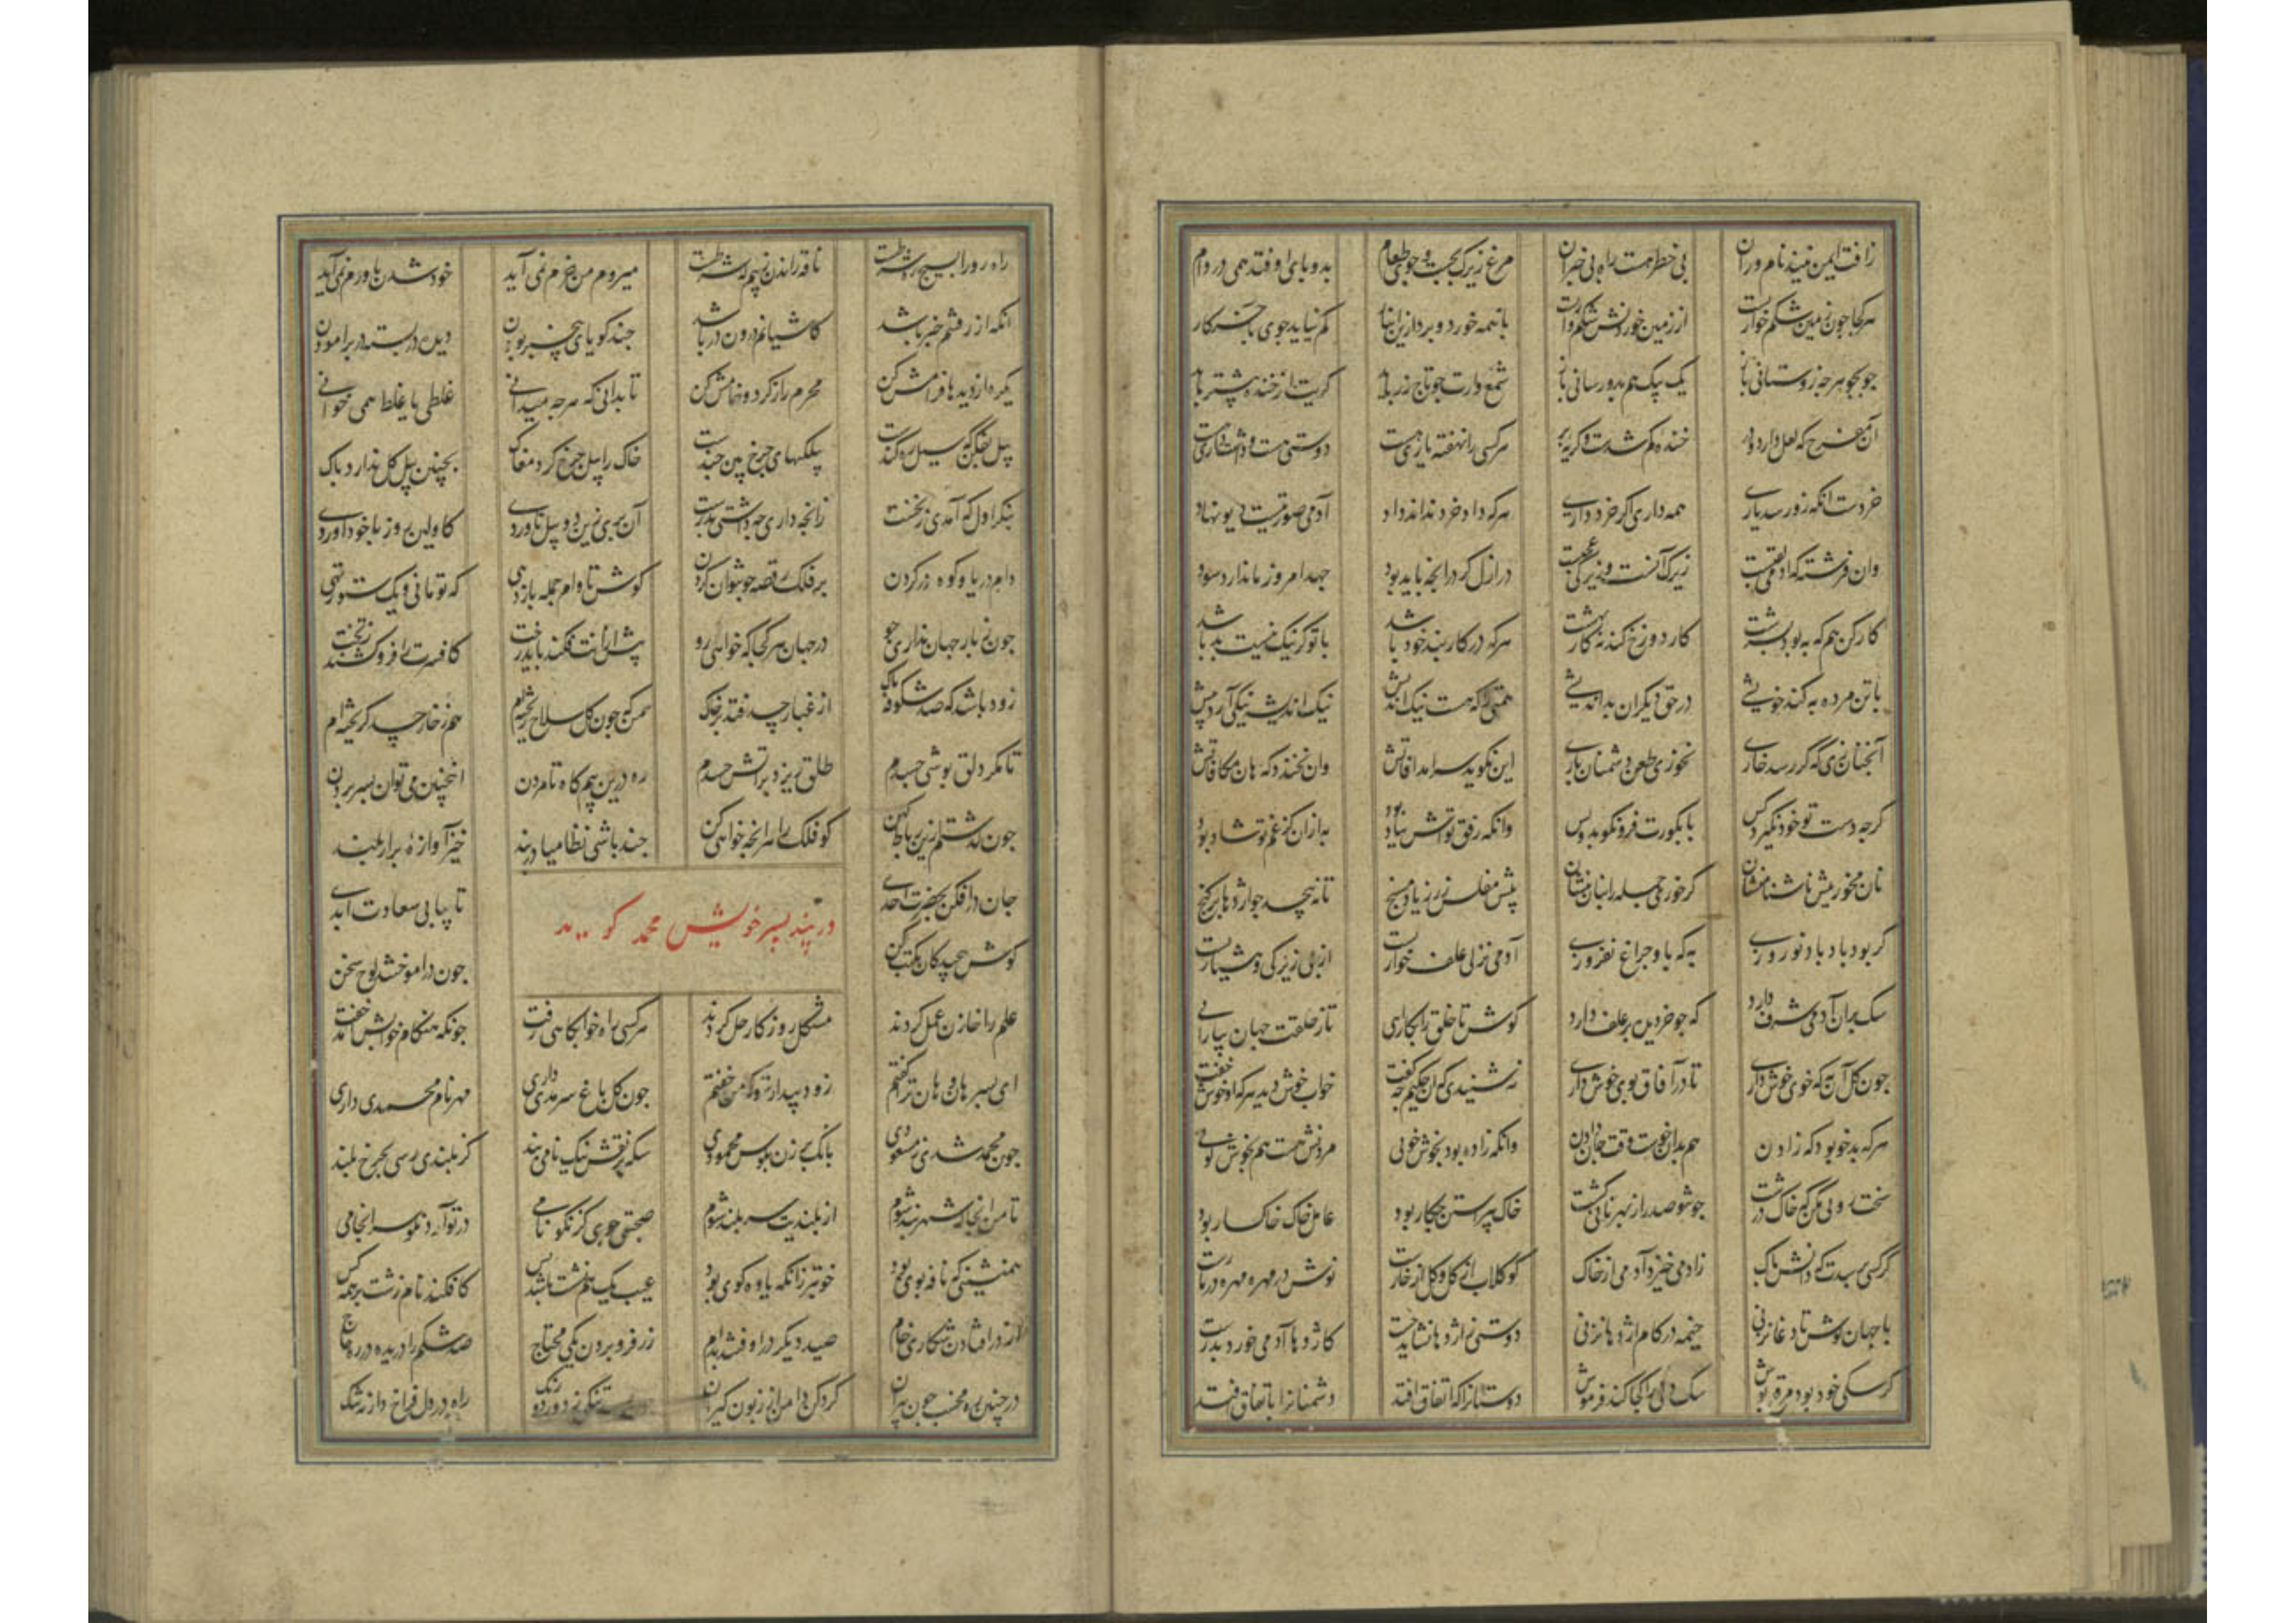 زافت ایمن نیند نام وران بی خطر هست راه بی خبران مرغ زیرک بجست و جوی طعام بدو پای اوفتد همی در دام
هر کجا چون زمین شکم خوارست از زمین خوردنش شکم وارست با همه خورد و برد ازین انبار کم نیاید جوی بآخر کار
جو بجو هرچه زو ستانی باز یک بیک هم بدو رسانی باز شمع وارت چو تاج زر باید کریت از خنده بیشتر باید
آن مفرح که لعل دارد و در خنده کم شدست و کریه پر هر کسی را نهفته یاری هست دوستی هست و دوستداری هست
خردست انکه زو رسد یاری همه داری اگر خرد داری هر که داد خرد نداند داد آدمی صورتست و دیو نهاد
وان فرشته که آدمی لقبست زیرک آنست و زیرکی عجبست در ازل کرد آنچه باید بود جهد امروز ما ندارد سود
کار کن هم که به بود بسرشت کار و دوزخ کند نه کار بهشت هر که در کار بند خود باشد با تو گر نیک نیست بد باشد
با تن مرده به کند خویشی در حق دیگران بداندیشی همتی را که هست نیک اندیش نیک اندیشه نیکی آرد پیش
آنچنان زی که گر رسد خاری نخوری طعن دشمنان باری این نگوید سرامد آفاتش وان نخندد که هان مکافاتش
گرچه دست تو خود نگیرد کس پای بر تو فرو نکوبد بس وانکه رفق تواش بیاد بود به ازان کز غم تو شاد بود
نان مخور پیش ناشتامنشان گر خوری جمله را بنان بنشان پیش مفلس زر زیاده مسنج تا نپیچد چو اژدها بر گنج
گر بود باد باد نوروزی به که با او چراغ نفروزی آدمی نز پی علف خواریست از پی زیرکی و هشیاریست
سک بران آدمی شرف دارد که چو خر دیده بر علف دارد کوش تا خلق را بکار آیی تا ز خلقت جهان بیارایی
چون گل آن به که خوی خوش داری تا در آفاق بوی خوش داری نشنیدی که آن حکیم چه گفت خواب خوش دید هر که او خوش خفت
هر که بدخو بود گه زادن هم بدان خوست وقت جان دادن وانکه زاده بود بخوش خویی مردنش هست هم بخوش رویی
سخت رویی مکن که خاک درشت چو تو صد را ز بهر نانی کشت خاک پیراستن چه کار بود عامل خاک خاکسار بود
گر کسی پرسدت که دانش پاک زآدمی خیزد آدمی از خاک گو گلاب از گل و گل از خارست نوش در مهره مهره در مارست
با جهان کوش تا دغا نزنی خیمه در کام اژدها نزنی دوستی ز اژدها نشاید جست کاژدها آدمی خورد بدرست
گر سگی خود بود مرقع پوش سگ دلی را کجا کند فرموش دوستانرا که اتفاق افتد دشمنانرا باتفاق افتد
راه رو را بسیچ ره شرطست ناقه راندن ز بیمگه شرطست میروم من خرم نمی آید خود شدن باورم نمی آید
انکه از رفتنم خبر باشد کاشیانم درون در باشد چند گویای بی خبر بودن دیده دربسته در بر آمودن
یکره از دیدها فرامش کن محرم راز گرد و خامش کن تا بدانی که هرچه میدانی غلطی یا غلط همی خوانی
پیل بفگن که سیل ره کندست پیلکیهای چرخ بین چندست خاک را پیل چرخ کرد مغاک بچنین پیل گل ندارد باک
بنگر اول که آمدی ز نخست زانچه داری چه داشتی بدرست آن بری زین دو پیل ناوردی کاولین روز با خود آوردی
وام دریا و کوه در گردن بر فلک رقص چون توان کردن کوش تا وام جمله باز دهی که تو مانی و یک ستور تهی
چون ز بار جهان نداری جو در جهان هر کجا که خواهی رو پیش از آنت فگند باید رخت کافسرت را فرو کشند ز تخت
زود باشد که صد شکوفه پاک از غبار حسد فتد بر خاک من که چون گل سلاح ریخته ام هم ز خار حسد گریخته ام
تا مگر دلق پوشی جسدم طلق ریزد بر آتش حسدم ره درین بیمگاه تا مردن اینچنین می توان بسر بردن
چون گذشتم ازین رباط کهن گو فلک را هر آنچه خواهی کن چند باشی نظامیا دربند خیز و آوازه برار بلند
جان درافکن بحضرت احدی تا بیابی سعادت ابدی
در پند پسر خویش محمد گوید
گوش پیچیدگان مکتب کن چون درآموختند لوح سخن
علم را خازن عمل کردند مشکل روزگار حل کردند هر کسی راه خوابگاهی رفت چونکه هنگام خوابش آمد خفت
ای پسر هان و هان ترا گفتم زود بیدار شو که من خفتم چون گل باغ سرمدی داری مهر نام محمدی داری
چون محمد شدی ز مسعودی بانگ برزن بکوس محمودی سکه بر نقش نیک نامی بند کز بلندی رسی بچرخ بلند
تا من آنجا که شهربند شوم از بلندیت سربلند شوم صحبتی جوی کز نکو نامی در تو آرد نکو سرانجامی
همنشینی که نافه بوی بود خوبتر زانکه یاوه گوی بود عیب یک هم نشست باشد بس کافکند نام زشت بر همه کس
از در افتادن شکاری خام صید دیگر در اوفتد بدام زر فرو بردن یکی محتاج صد شکم را درید در ره حاج
در چنین ره مخسب چون پیران گرد کن دامن از زبون گیران راه در دل فراخ دار نه تنگ